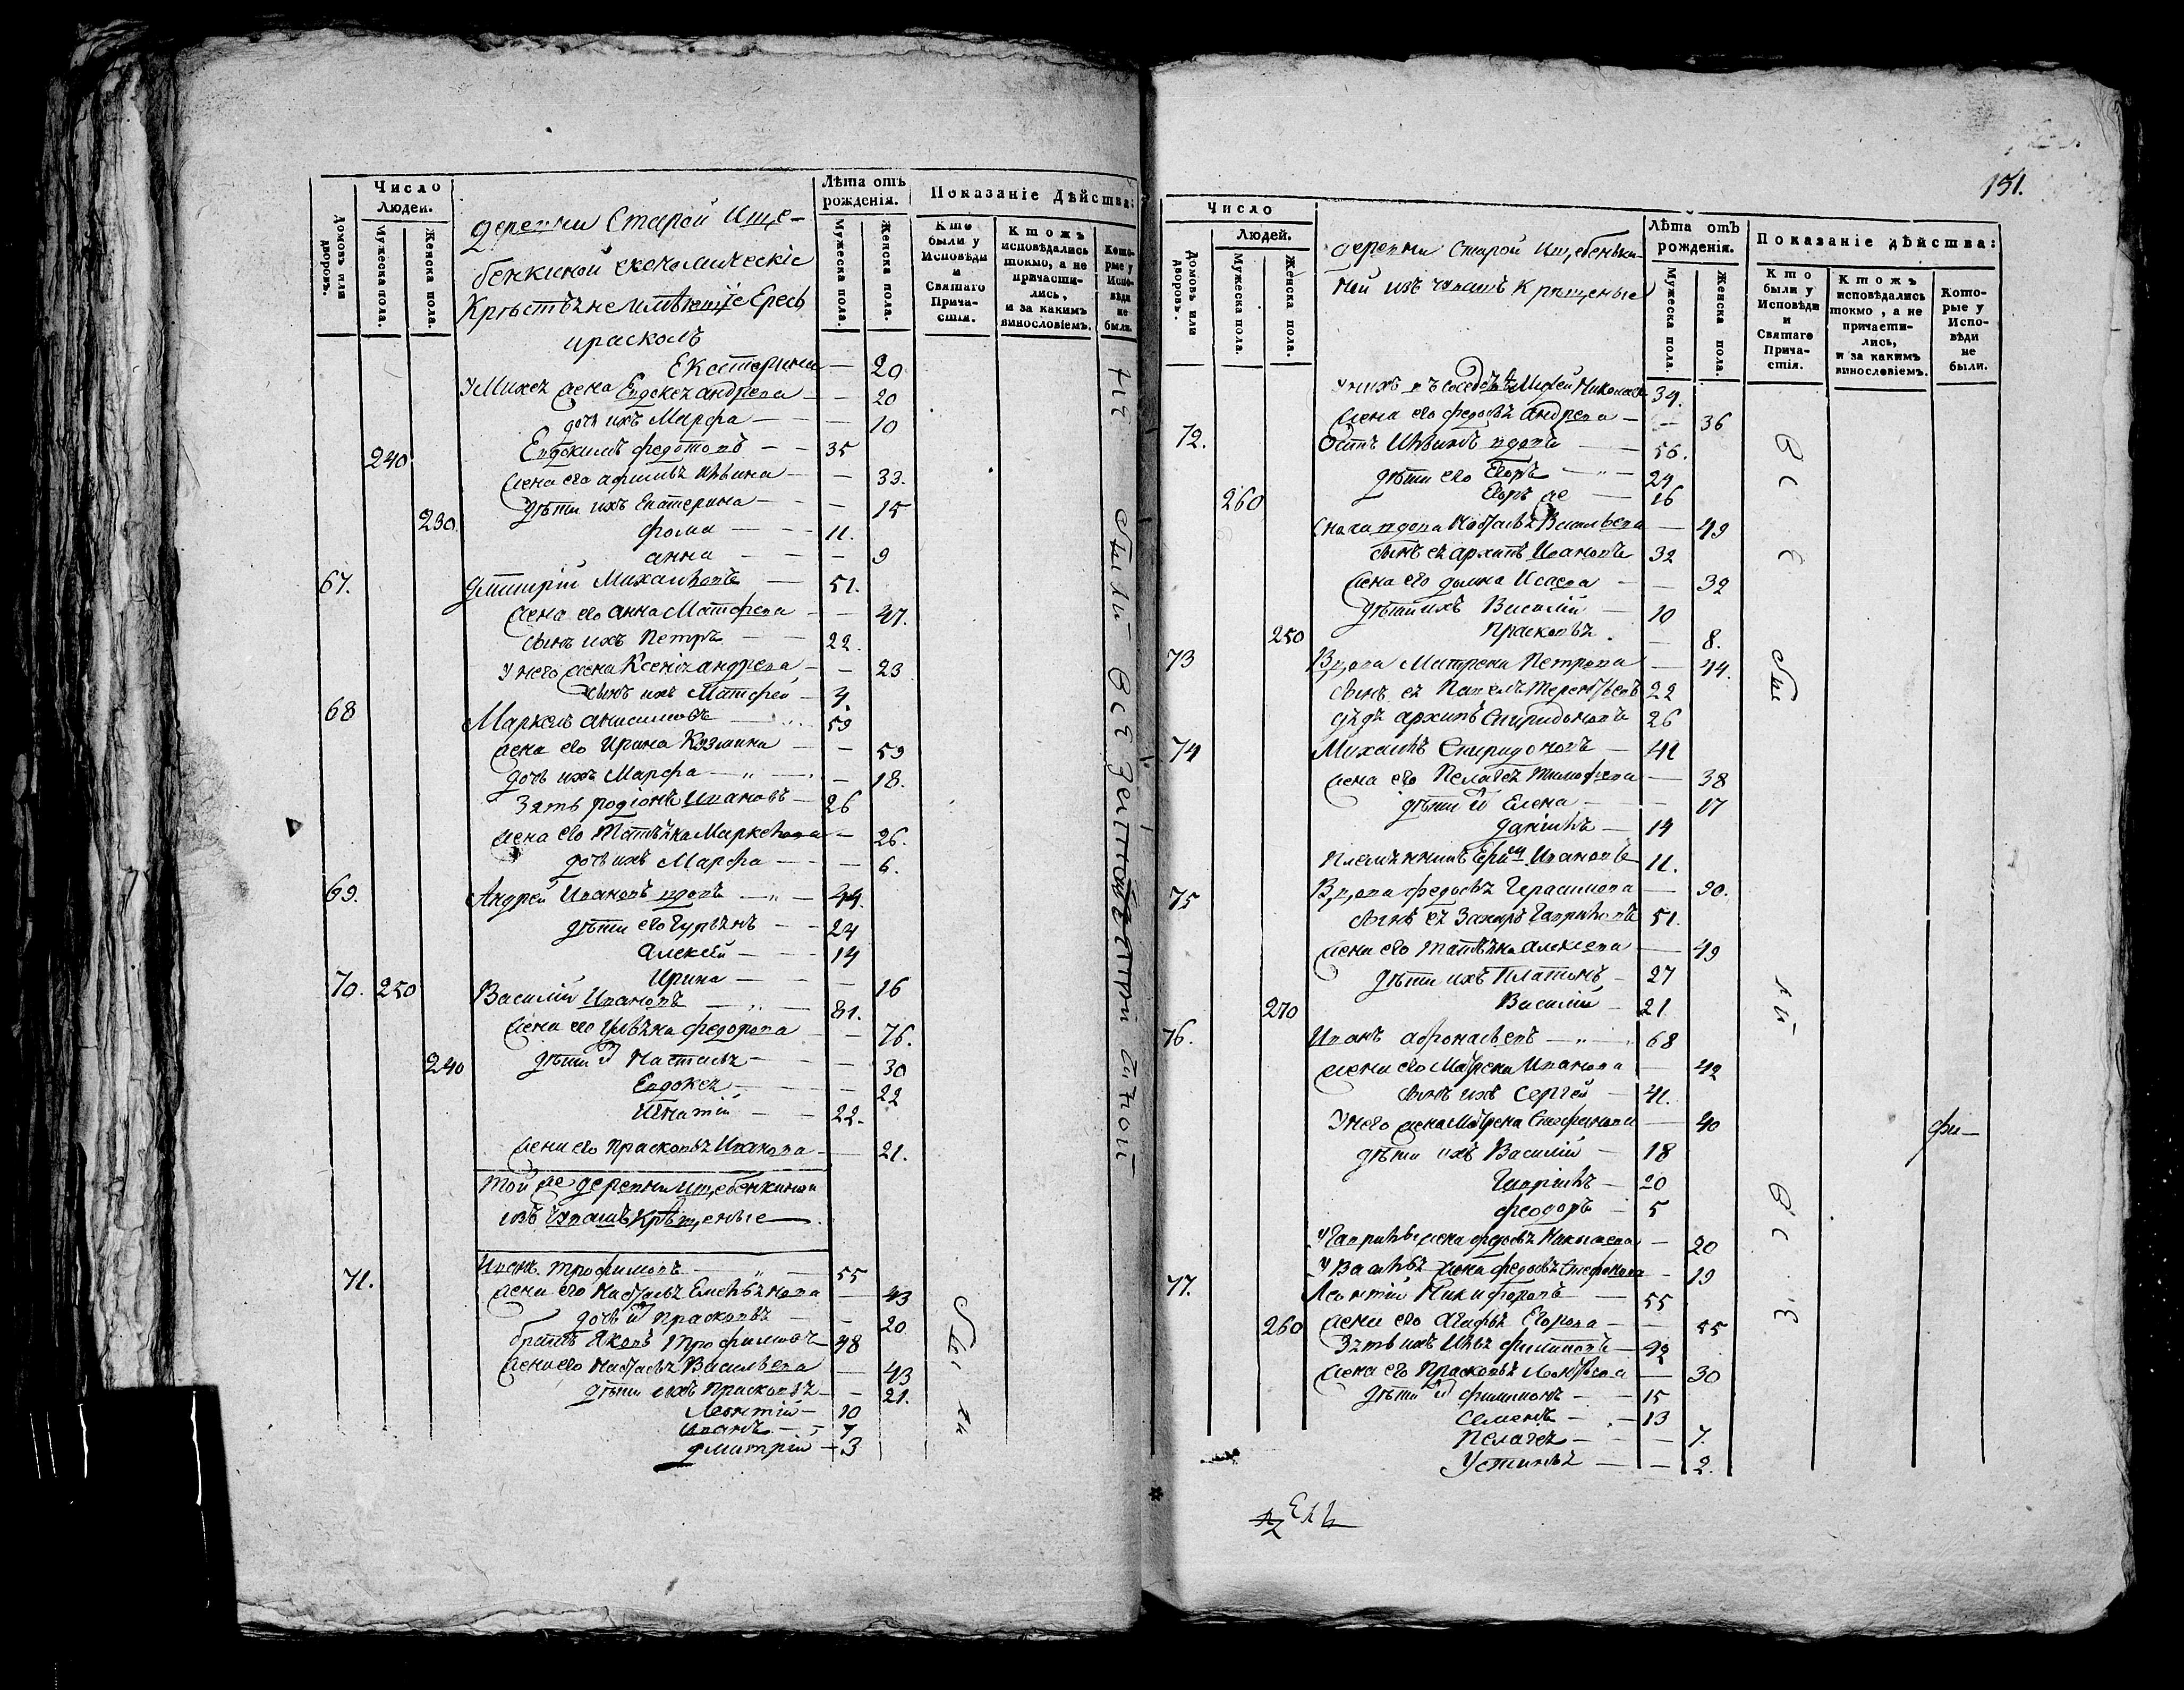 Домовъ или дворовъ.
Число Людей.
Мужеска пола.
Женска пола.
деревни Старой Ище-
бенкиной економическіе
Крѣстьяне имѣющіе Ересь
ирасколъ
Лѣта отъ рожденія.
Мужеска пола.
Женска пола.
Показаніе Дѣйства:
Кто были у Исповѣди и Святаго Причастія.
Ктожъ исповѣдались токмо, а не причастились, и за какимъ винословіемъ.
Которые у Исповѣди не были.
Екатерина — 20
жена Евдокея андреева — 20
дочь ихъ Марфа — 10
240 Евдокимъ федотовъ — 35
жена его — 33.
дѣти ихъ Екатерина — 15
230. фома — 11.
анна — 9
67. Дмитрій Михаиловъ — 51.
жена его анна Матфеева — 47.
сынъ ихъ Петръ — 22.
У него жена Ксенія андреева — 23
сынъ ихъ Матфей — 3.
68 Маркелъ анисимовъ — 59
жена его Ирина Козмина — 59
дочь ихъ Марфа — 18.
Зять родіонъ Ивановъ — 26
жена его Татьяна Маркелова — 26.
дочь ихъ Марфа — 6.
69. Андрей Ивановъ вдовъ — 44.
дѣти его Гурьянъ — 24
алексѣй — 14
Ирина — 16
70. 250 Василій Ивановъ — 81.
жена его Ульяна федорова — 76.
240 дѣти их Настасья — 30
Евдокея — 22
Игнатій — 22.
жена его Прасковья Иванова — 21.
Той же деревни Ищебенкиной
изъ чувашъ Крѣщеные
71. Иванъ трофимовъ — 55
жена его Настасья Емельянова — 43
дочь их Прасковья — 20
братъ Яковъ трофимовъ — 48
жена его Настасья Васильева — 43
дѣти ихъ Прасковья — 21.
Леонтій — 10
иванъ — 7
дмитрій — 3
Не были все
были
131.
Домовъ или дворовъ.
Число Людей.
Мужеска пола.
Женска пола.
деревни Старой Ищебеньки-
ной изъ чувашъ Крѣщеные
Лѣта отъ рожденія.
Мужеска пола.
Женска пола.
Показаніе дѣйства:
Кто были у Исповѣди и Святаго Причастія.
Ктожъ исповѣдались токмо, а не причастились, и за какимъ винословіемъ.
Которые у Исповѣди не были.
Николаевъ 34.
жена его федосья андреева — 36
72. вдовъ — 56.
дѣти его Егоръ — 24
260 Егоръ же — 16
Сноха вдова Настасья Васильева — 49
сынъ ея архипъ Ивановъ 32
жена его домна Исаева — 32
дѣти ихъ Василій — 10
250 Прасковья — 8.
73 Вдова Матрена Петрова — 44.
сынъ ея Павелъ Терентьевъ 22
дядя архипъ Спиридоновъ 26
74 Михаилъ Спиридоновъ — 41
жена его Пелагея тимофеева — 38
дѣти их Елена — 17
данилъ — 14
Племянникъ Ивановъ 11.
75 Вдова федосья Герасимова — 90.
сынъ ея Захаръ Гавриловъ 51.
жена его татьяна алексеева — 49
дѣти ихъ Платонъ — 27
270 Василій — 21
76. Иванъ афонасьевъ — 68
жена его Матрена Иванова — 42
сынъ ихъ Сергей — 41.
У него жена Матрена Стефанова — 40
дѣти ихъ Василій — 18
Гаврилъ — 20
феодоръ — 5
У Гаврилы жена федосья Николаева — 20
У Василья жена федосья Стефанова — 19
77. Леонтій Никифоровъ — 55
260 жена его агафья Егорова — 55
Зять ихъ Илья филиповъ — 42
жена его Прасковья Леонтьева — 30
дѣти их филимонъ — 15
Семенъ — 13
Пелагея — 7.
Устинья — 2.
Все
были
Все